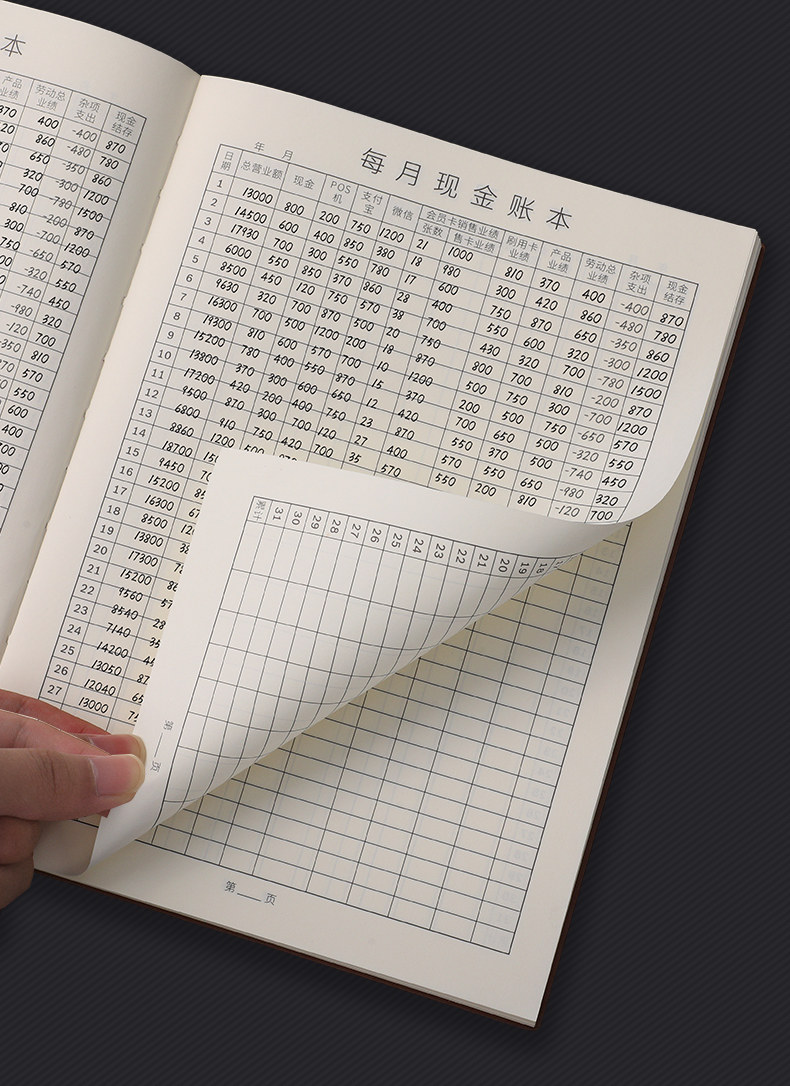 本
产品业绩 劳动总业绩 杂项支出 现金结存
370 400 -400 870
20 860 -480 780
650 -350 860
320 -300 1200
700 -780 1500
810 -200 870
-700 1200
750 -650 570
-320 550
-740 450
-980 320
-120 700
-350 810
570
550
600
400
500
每月现金账本
年 月
日期 总营业额 现金 POS机 支付宝 微信 会员卡销售业绩 刷用卡业绩 产品业绩 劳动总业绩 杂项支出 现金结存
张数 售卡业绩
1 13000 800 200 750 1200 21 1000 810 370 400 -400 870
2 14500 600 400 850 380 18 980 300 420 860 -480 780
3 17930 700 300 550 780 17 600 750 870 650 -350 860
4 6000 550 850 370 860 28 400 550 600 320 -300 1200
5 8500 450 120 750 570 38 700 430 320 700 -780 1500
6 9630 320 700 870 500 20 750 800 700 810 -200 870
7 16300 700 500 1200 200 18 870 500 750 300 -700 1200
8 19300 810 600 570 700 10 1200 200 500 750 -650 570
9 15200 780 400 550 870 15 370 700 650 500 -320 550
10 13800 370 300 600 650 12 420 550 370 500 -740 450
11 17200 420 200 400 750 23 870 570 550 650 -980 320
12 9500 870 300 700 120 27 400 550 200 810 -120 700
13 6800 910 750 420 700 35 570
14 8860 1200
15 18700
16 9450
17 15200
18 16300
19 8500
20 13800
21 17300
22 15200
23 9560
24 8540
25 7140
26 14200
27 13050
12040
13000
累计 31 30 29 28 27 26 25 24 23 22 21 20 19 18
第 页
第 页